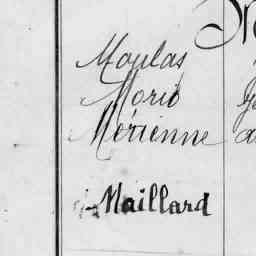 Moulas
Morio
Mérienne
Maillard